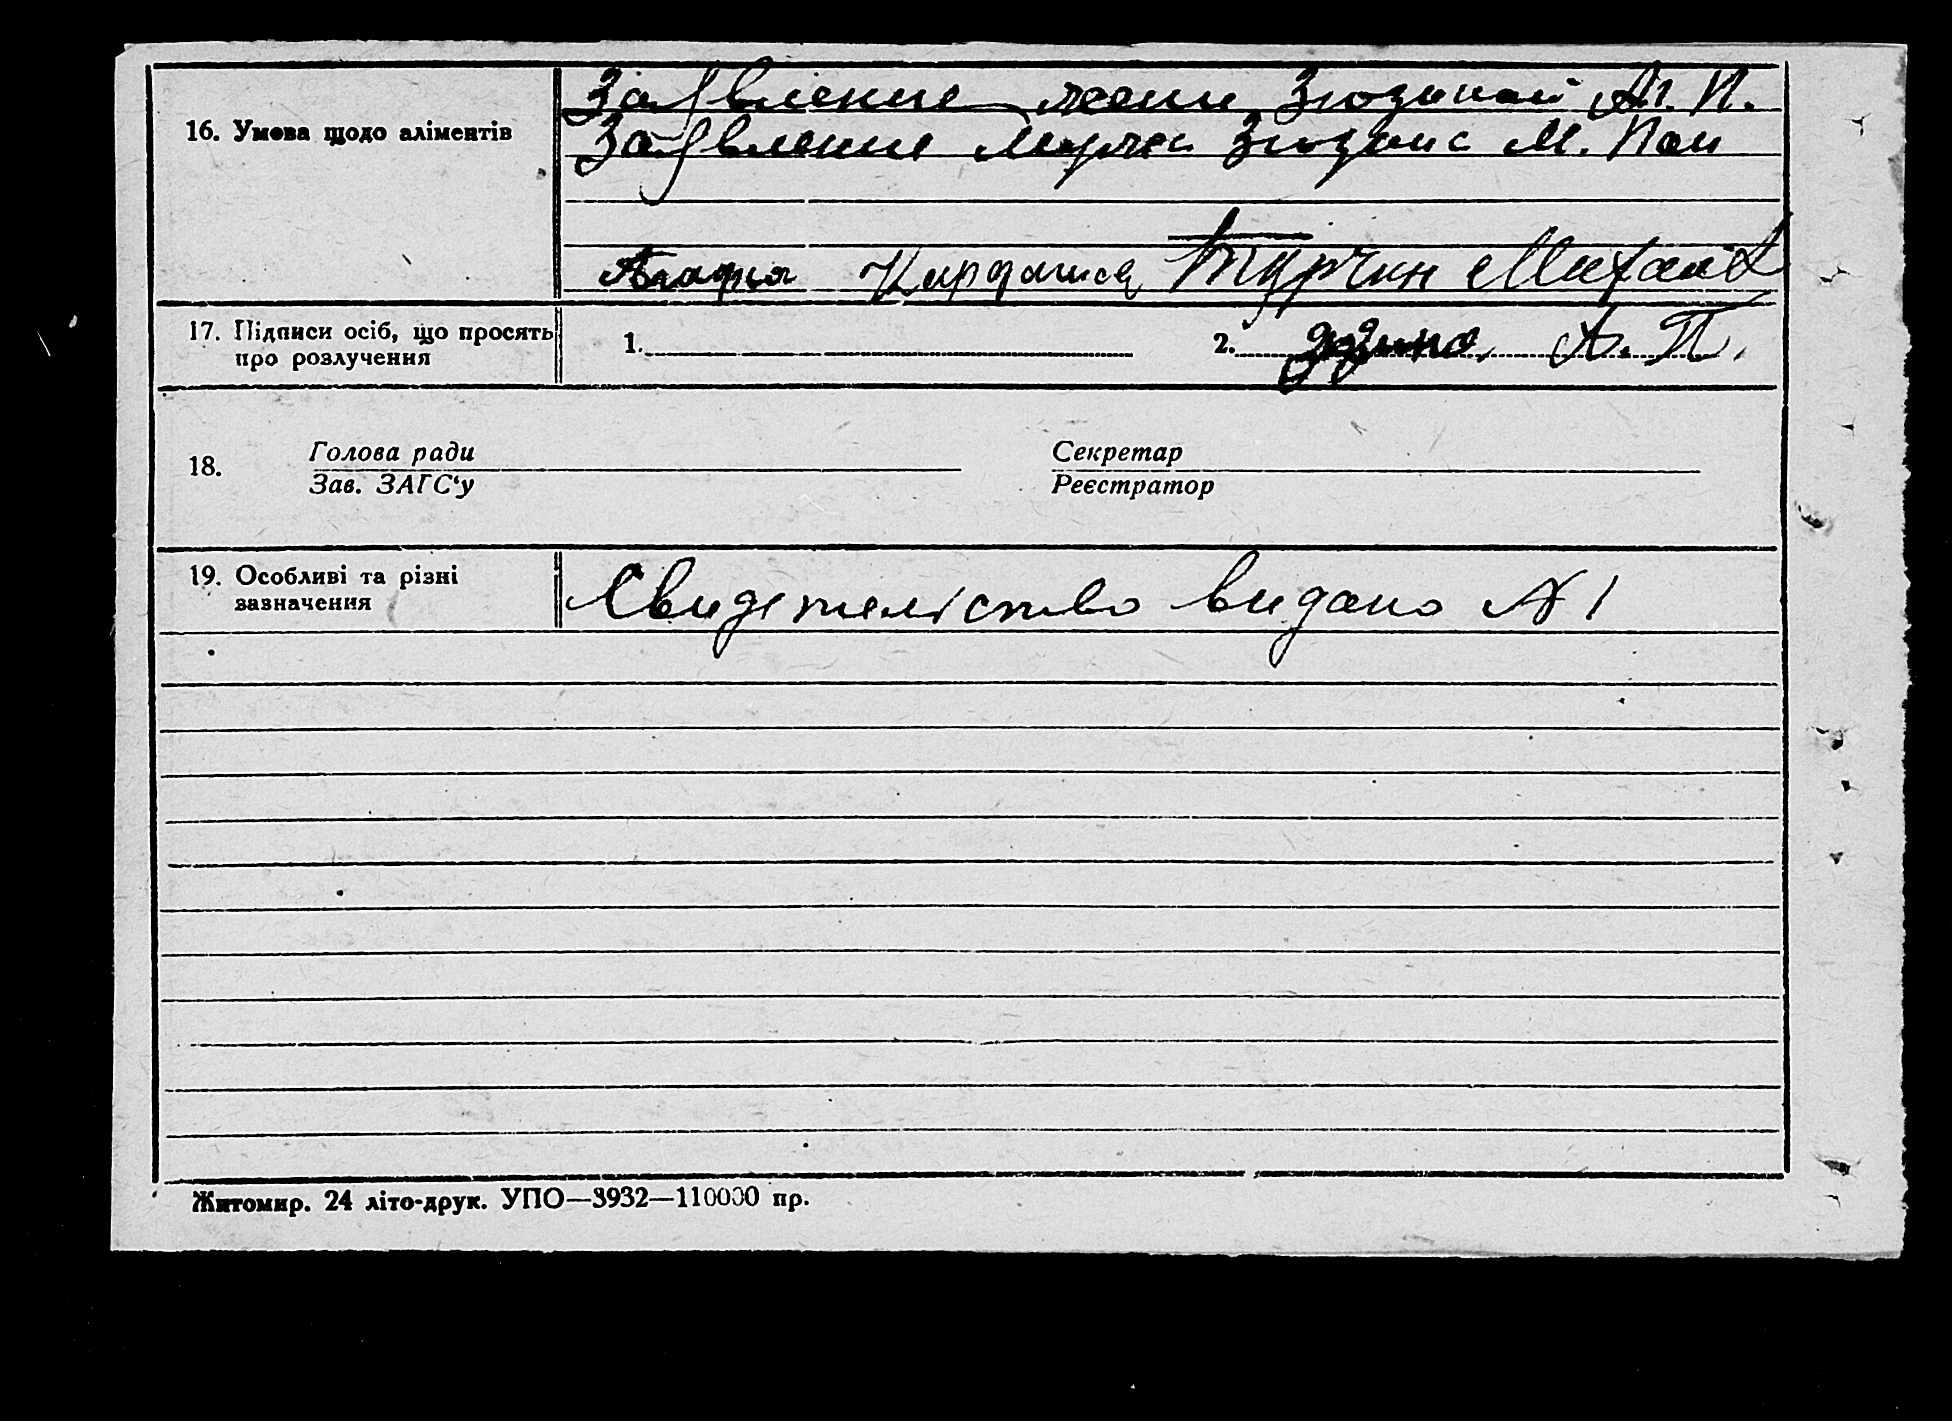 Заявление жени Зюзиной А. П.
16. Умова щодо аліментів
Заявление Мужа Зюзина М.
Турчин Михаил
17. Підписи осіб, що просять
про розлучення
1.
2. А. П.
18.
Голова ради
Зав. ЗАГС‘у
Секретар
Реєстратор
19. Особливі та різні
зазначення
Свидетельство видано № 1
Житомир. 24 літо-друк. УПО—3932—110000 пр.